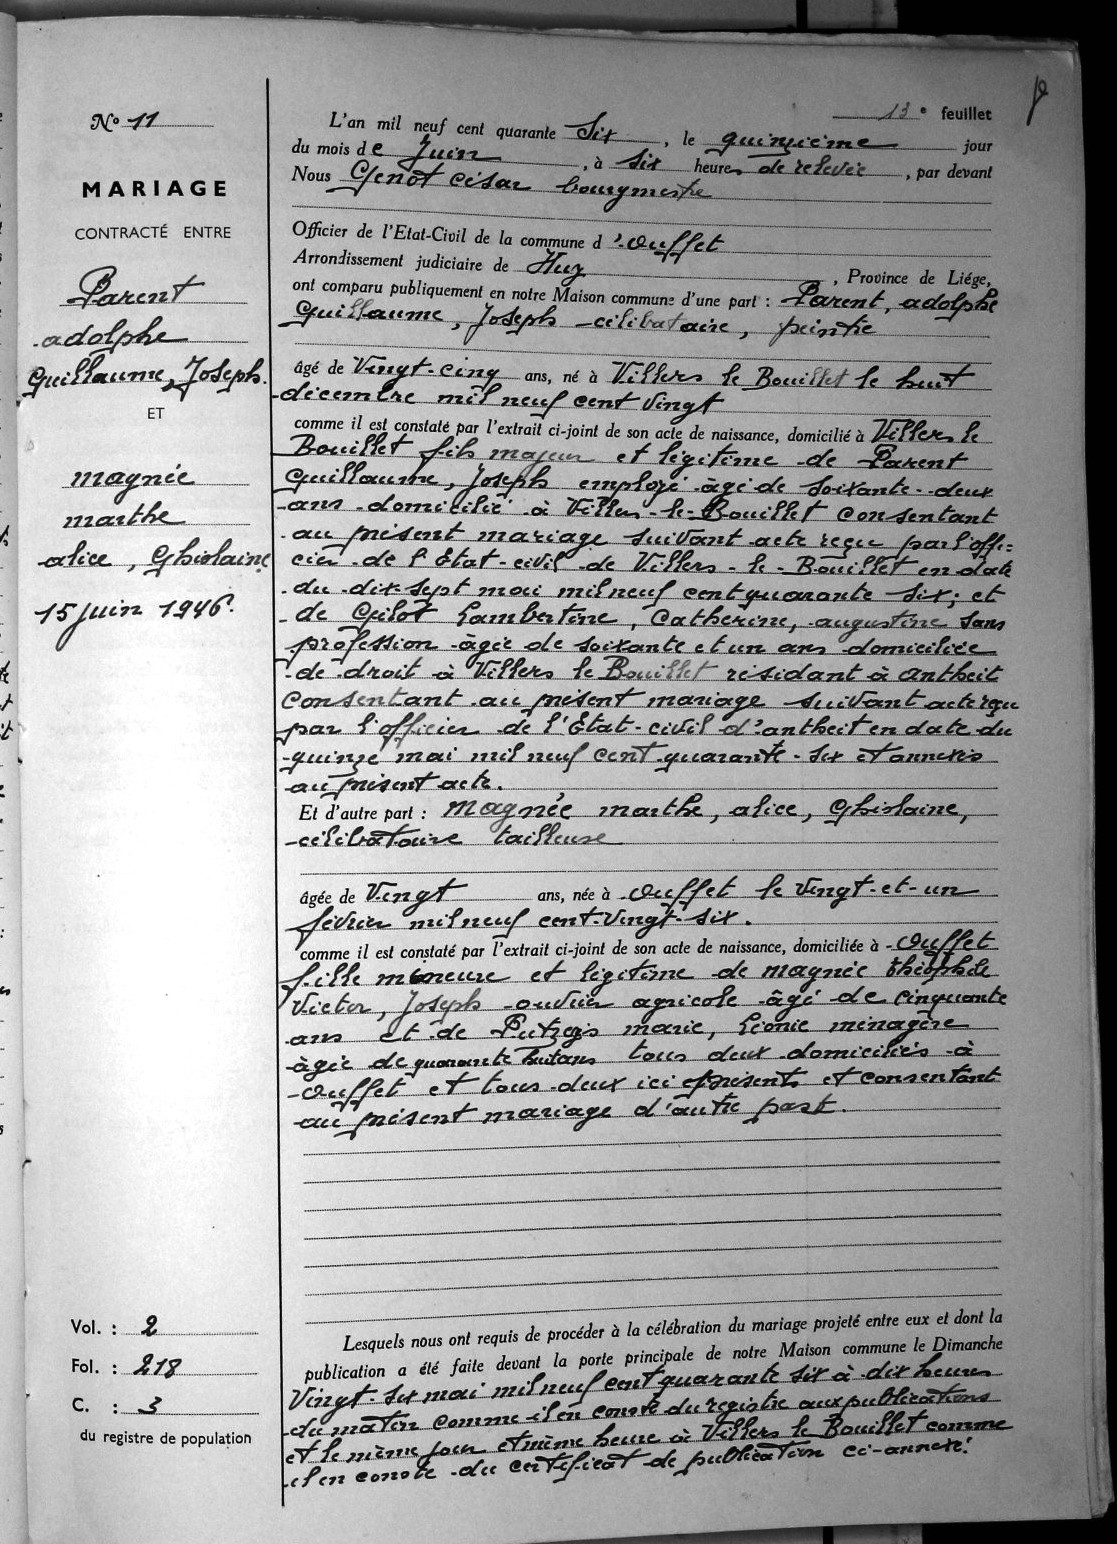 13e feuillet
N° 11
MARIAGE
CONTRACTÉ ENTRE
Parent
adolphe
Guillaume, Joseph.
ET
magnée
marthe
alice, Ghislaine
15 juin 1946.
Vol. : 2
Fol. : 218
C. : 3
du registre de population
L'an mil neuf cent quarante Six, le quinzième jour
du mois de Juin, à six heures de relevée, par devant
Nous Genot César bourgmestre
Officier de l'Etat-Civil de la commune d'Ouffet
Arrondissement judiciaire de Huy, Province de Liége,
ont comparu publiquement en notre Maison commune d'une part : Parent, adolphe
Guillaume, Joseph célibataire, peintre
âgé de Vingt-cinq ans, né à Villers le Bouillet le huit
décembre mil neuf cent vingt
comme il est constaté par l'extrait ci-joint de son acte de naissance, domicilié à Villers le
Bouillet fils majeur et légitime de Parent
Guillaume, Joseph employé âgé de soixante-deux
ans domicilié à Villers-le-Bouillet consentant
au présent mariage suivant acte reçu par l'offi=
cier de l'Etat-civil de Villers-le-Bouillet en date
du dix-sept mai mil neuf cent quarante six; et
de Gilot Lambertine, Catherine, augustine sans
profession âgée de soixante et un ans domiciliée
de droit à Villers le Bouillet résidant à antheit
consentant au présent mariage suivant acte reçu
par l'officier de l'Etat-civil d'antheit en date du
quinze mai mil neuf cent quarante-six et annexés
au présent acte.
Et d'autre part : Magnée marthe, alice, Ghislaine,
célibataire tailleuse
âgée de Vingt ans, née à Ouffet le vingt-et-un
février mil neuf cent-vingt-six.
comme il est constaté par l'extrait ci-joint de son acte de naissance, domiciliée à Ouffet
fille mineure et légitime de magnée théophile
Victor, Joseph ouvrier agricole âgé de cinquante
ans et de Putzeys marie, Léonie ménagère
âgée de quarante huit ans tous deux domiciliés à
Ouffet et tous deux ici présents et consentant
au présent mariage d'autre part.
Lesquels nous ont requis de procéder à la célébration du mariage projeté entre eux et dont la
publication a été faite devant la porte principale de notre Maison commune le Dimanche
Vingt-six mai mil neuf cent quarante six à dix heures
du matin comme il en conste du registre aux publications
et le même jour et même heure à Villers le Bouillet comme
il en conste du certificat de publication ci-annexé.